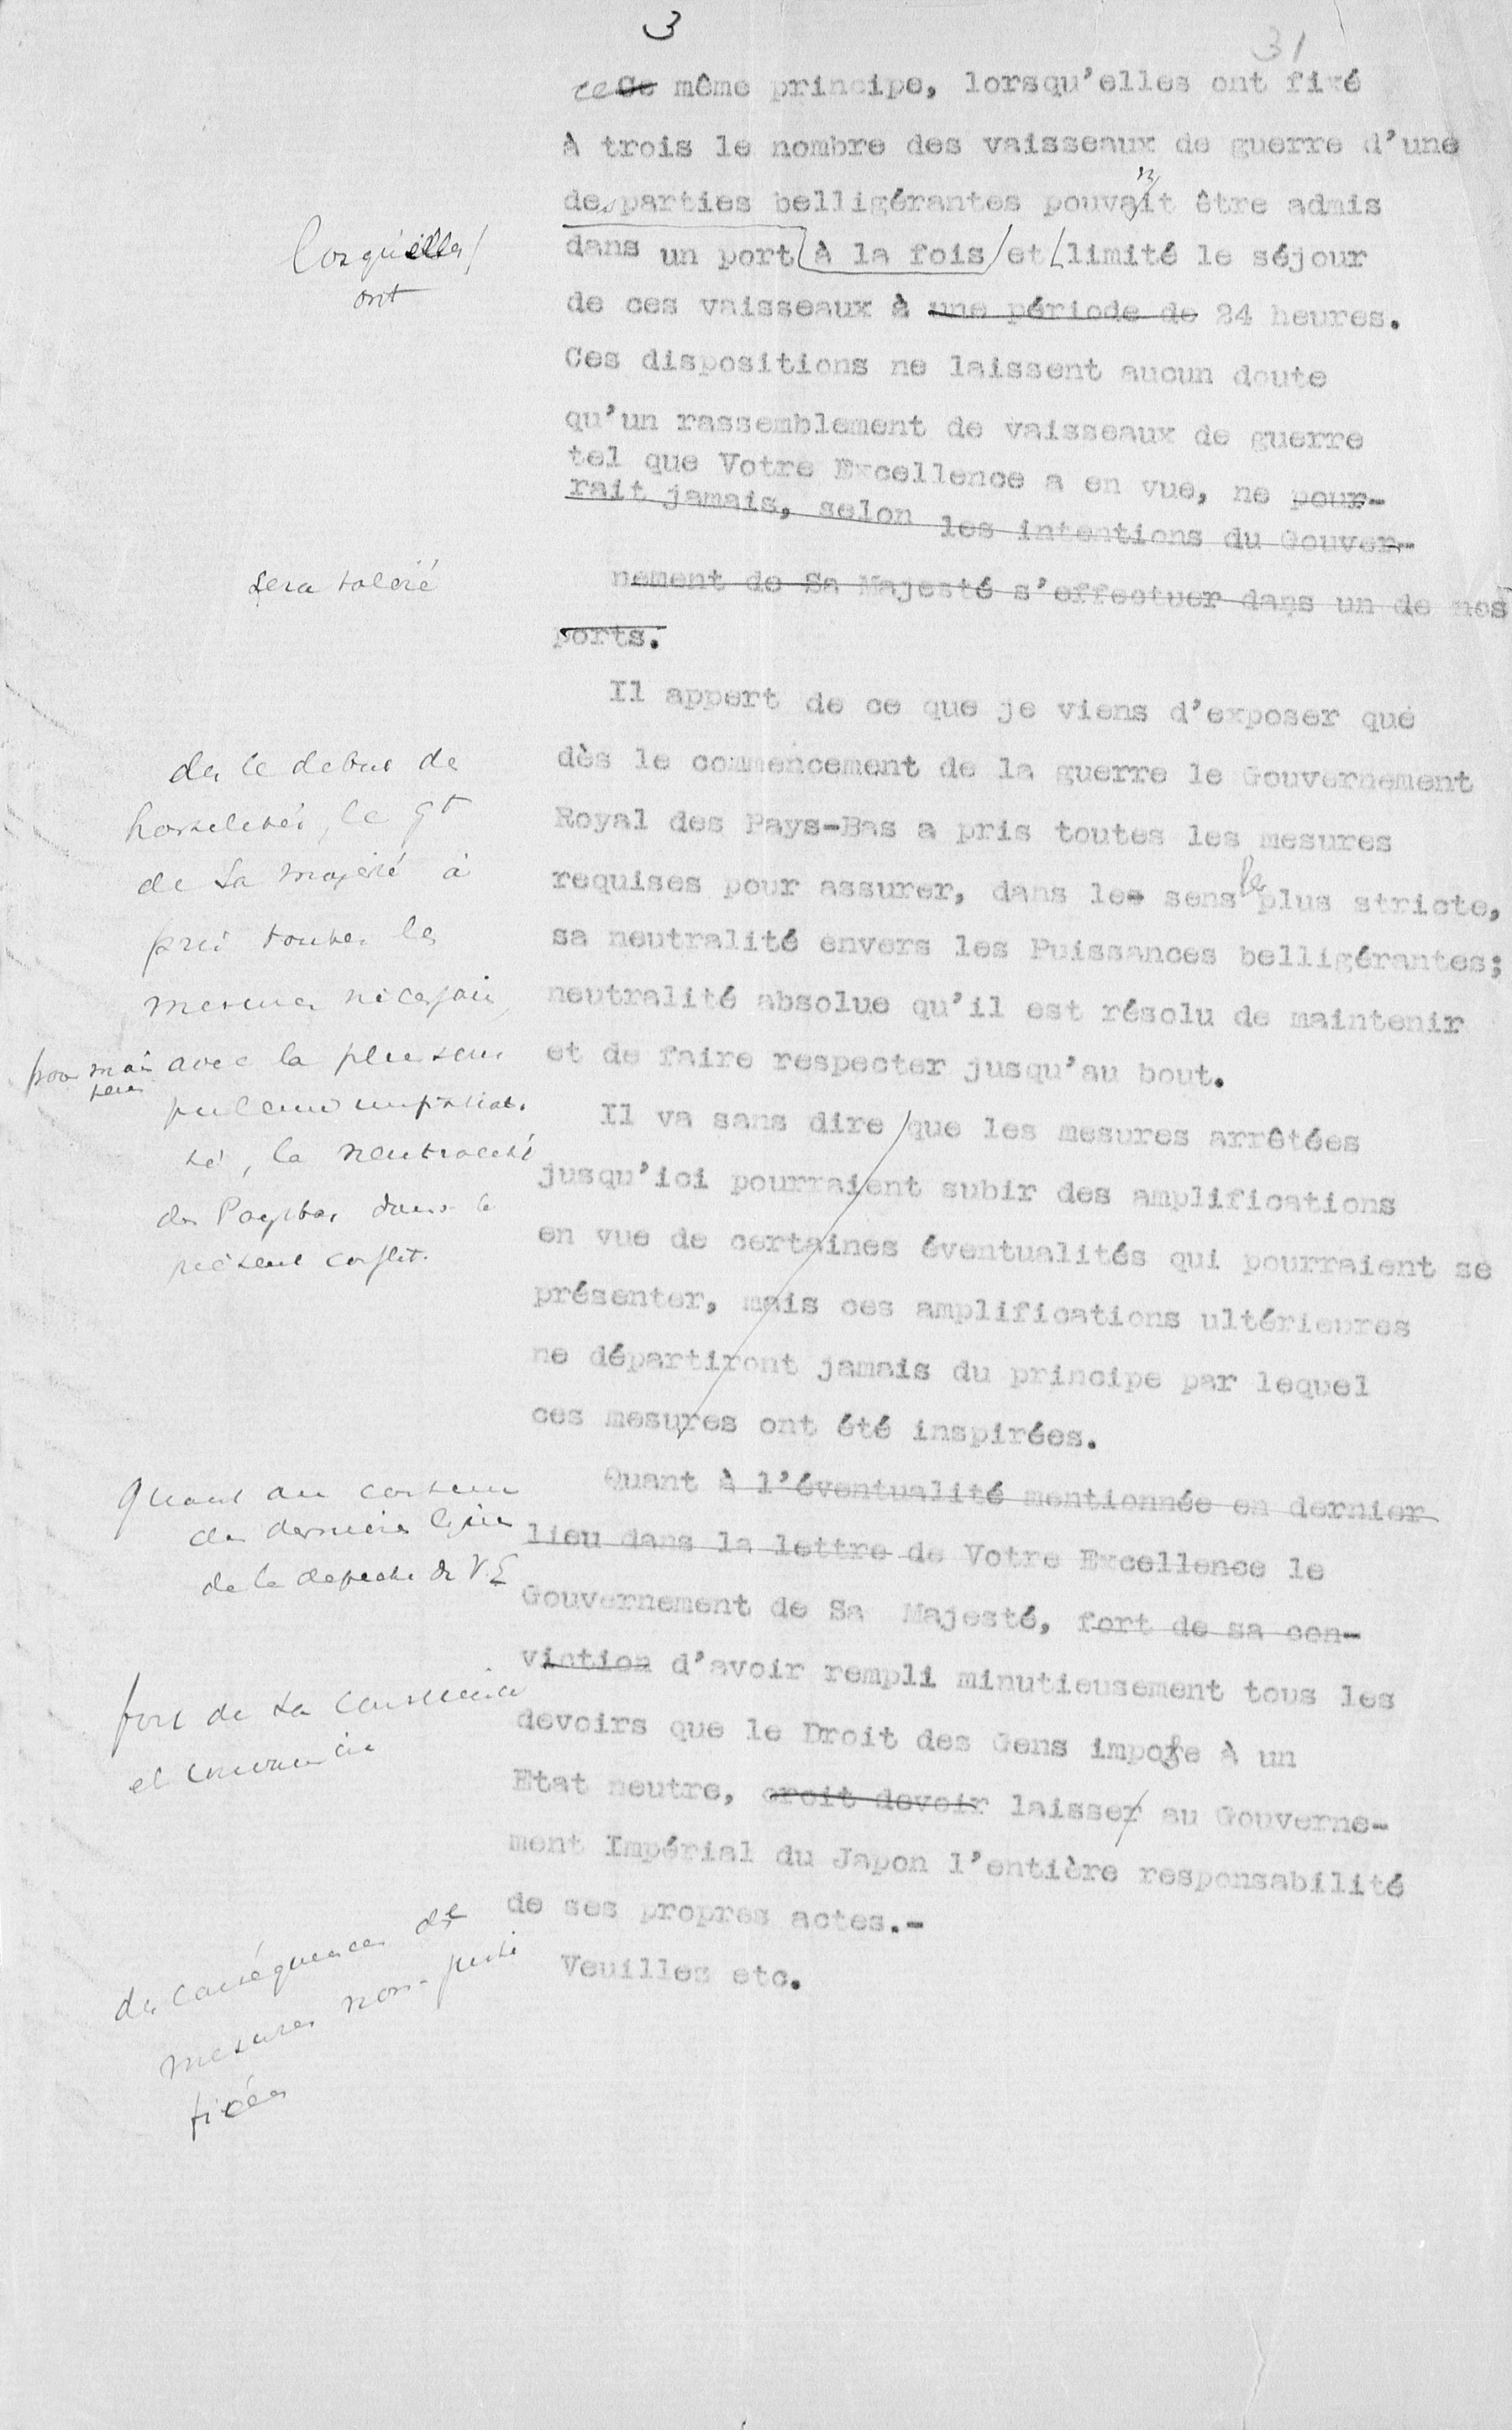 3
31
ce Ce même principe, lorsqu'elles ont fixé
à trois le nombre des vaisseaux de guerre d'une
des parties belligérantes pouvant être admis
lorsqu'elles
ont
dans un port à la fois et limité le séjour
de ces vaisseaux à une période de 24 heures.
Ces dispositions ne laissent aucun doute
qu'un rassemblement de vaisseaux de guerre
tel que Votre Excellence a en vue, ne pour-
rait jamais, selon les intentions du Gouver-
sera toléré
nement de Sa Majesté s'effectuer dans un de nos
ports.
Il appert de ce que je viens d'exposer que
dès le commencement de la guerre le Gouvernement
Royal des Pays-Bas a pris toutes les mesures
requises pour assurer, dans les sens le plus stricte,
sa neutralité envers les Puissances belligérantes;
neutralité absolue qu'il est résolu de maintenir
et de faire respecter jusqu'au bout.
des le debut des
hostilités, le Gt
de Sa Majesté a
pris toutes les
mesures nécessaires
pour main
tenir
avec la plus
impartiali-
té, la neutralité
des Paysbas dans le
présent conflit.
Il va sans dire que les mesures arrêtées
jusqu'ici pourraient subir des amplifications
en vue de certaines éventualités qui pourraient se
présenter, mais ces amplifications ultérieures
ne départiront jamais du principe par lequel
ces mesures ont été inspirées.
Quant au contenu
des dernieres lignes
de la depeche de V.E
Quant à l'éventualité mentionnée en dernier
lieu dans la lettre de Votre Excellence le
Gouvernement de Sa Majesté, fort de sa con-
viction d'avoir rempli minutieusement tous les
fort de sa conscience
et convaincu
devoirs que le Droit des Gens impose à un
Etat neutre, croit devoir laisser au Gouverne-
ment Impérial du Japon l'entière responsabilité
de ses propres actes.-
des conséquences de
mesures non-justi
fiées
Veuillez etc.